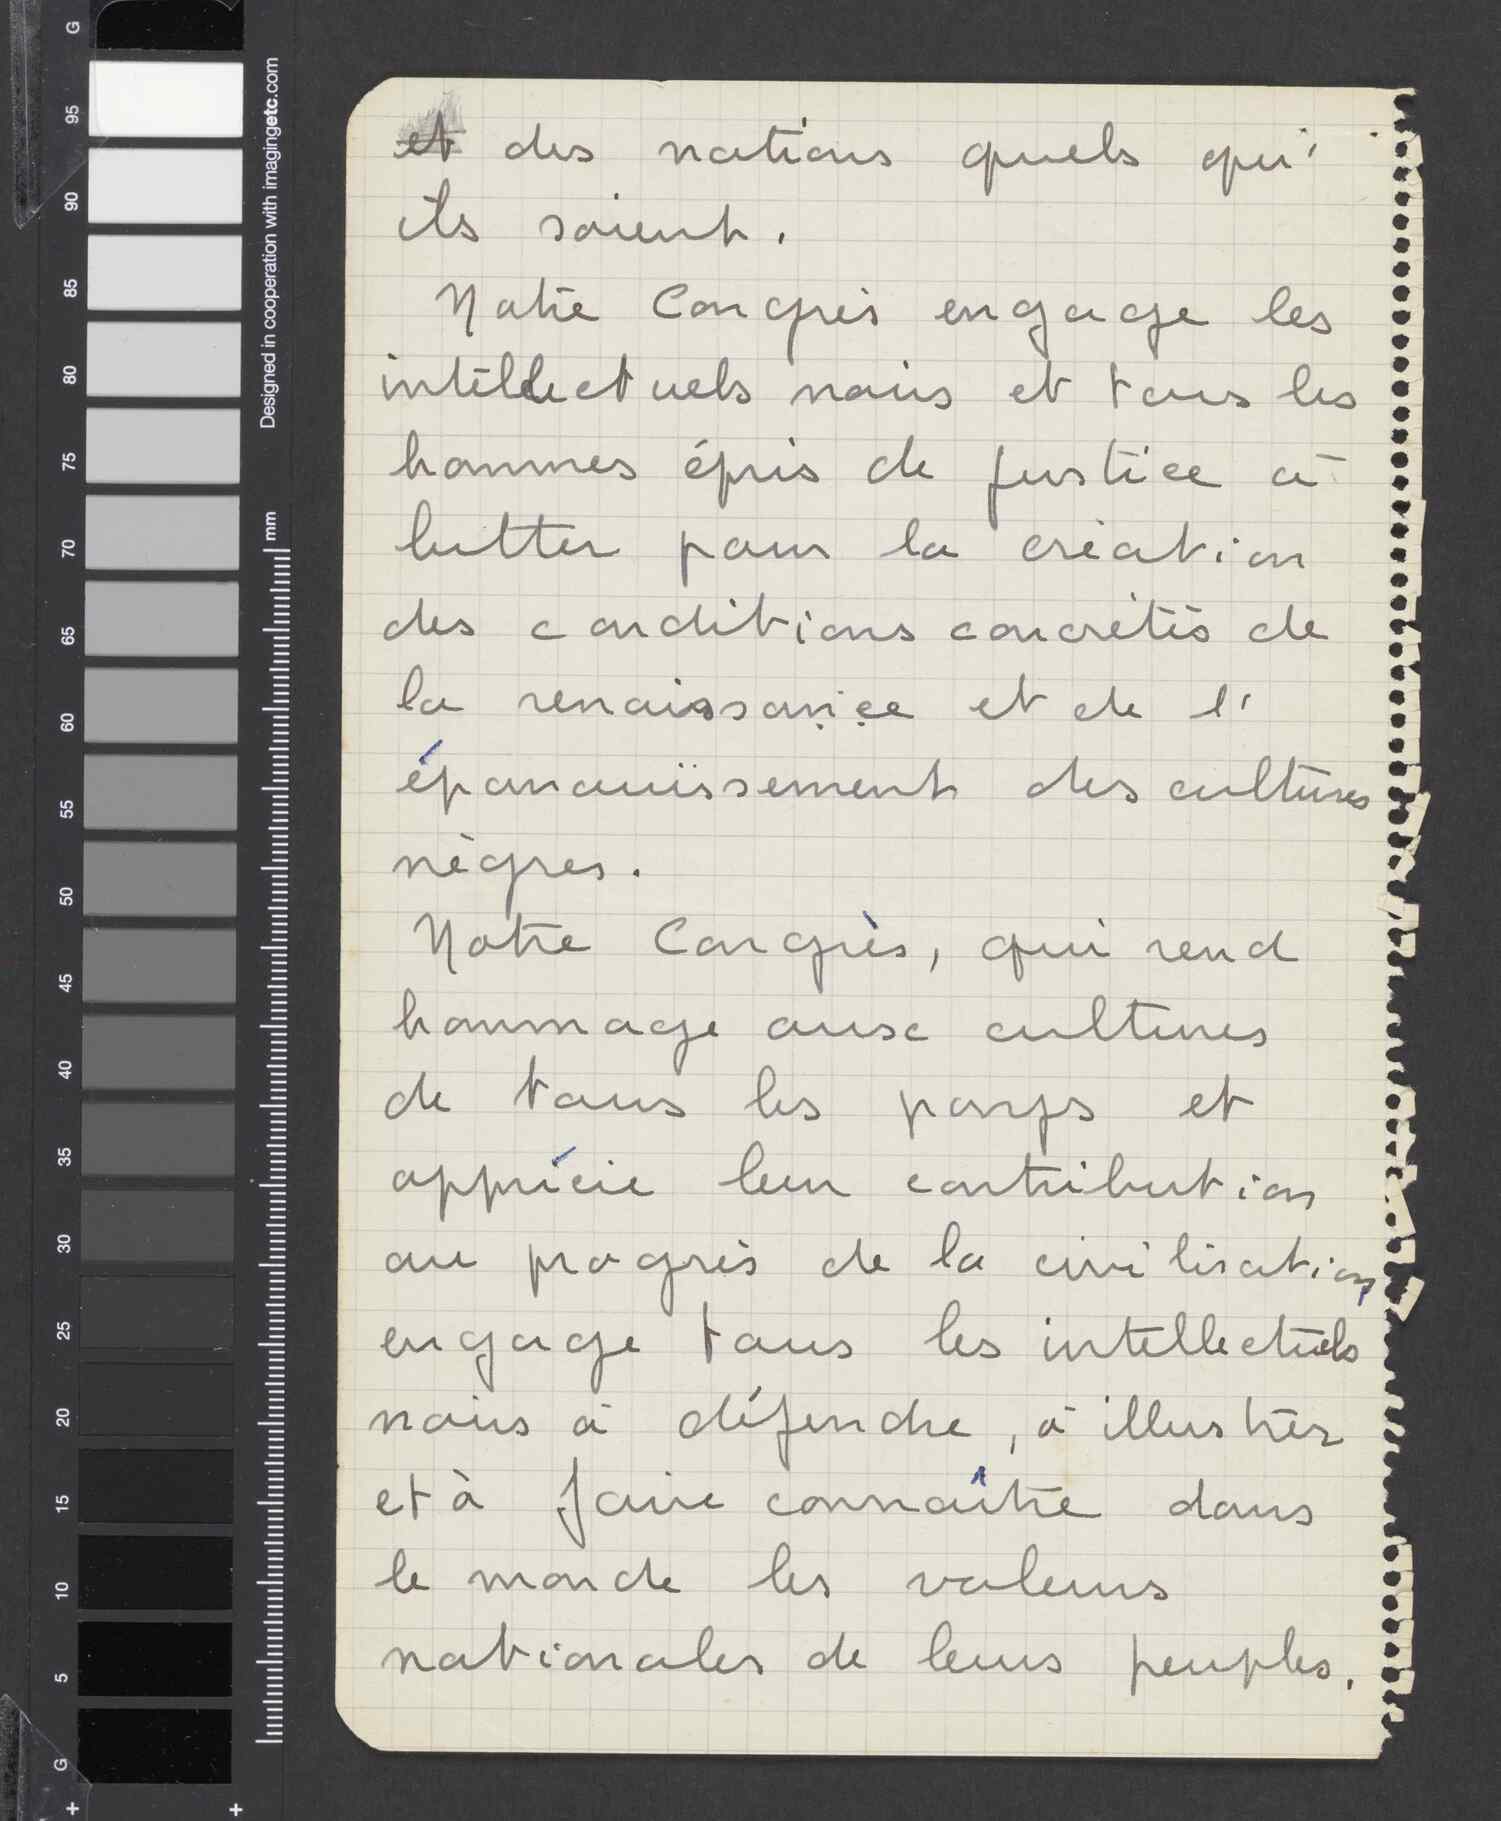 G
95
90
85
80
75
70
65
60
55
50
45
40
35
30
25
20
15
10
5
G
Designed in cooperation with imagingetc.com
mm
et des nations quels qu'
ils soient.
Notre Congrès engage les
intellectuels noirs et tous les
hommes épris de justice à
lutter pour la création
des conditions concrètes de
la renaissance et de l'
épanouissement des cultures
nègres.
Notre Congrès, qui rend
hommage aux cultures
de tous les pays et
apprécie leur contribution
au progrès de la civilisation,
engage tous les intellectuels
noirs à défendre, à illustrer
et à faire connaître dans
le monde les valeurs
nationales de leurs peuples.